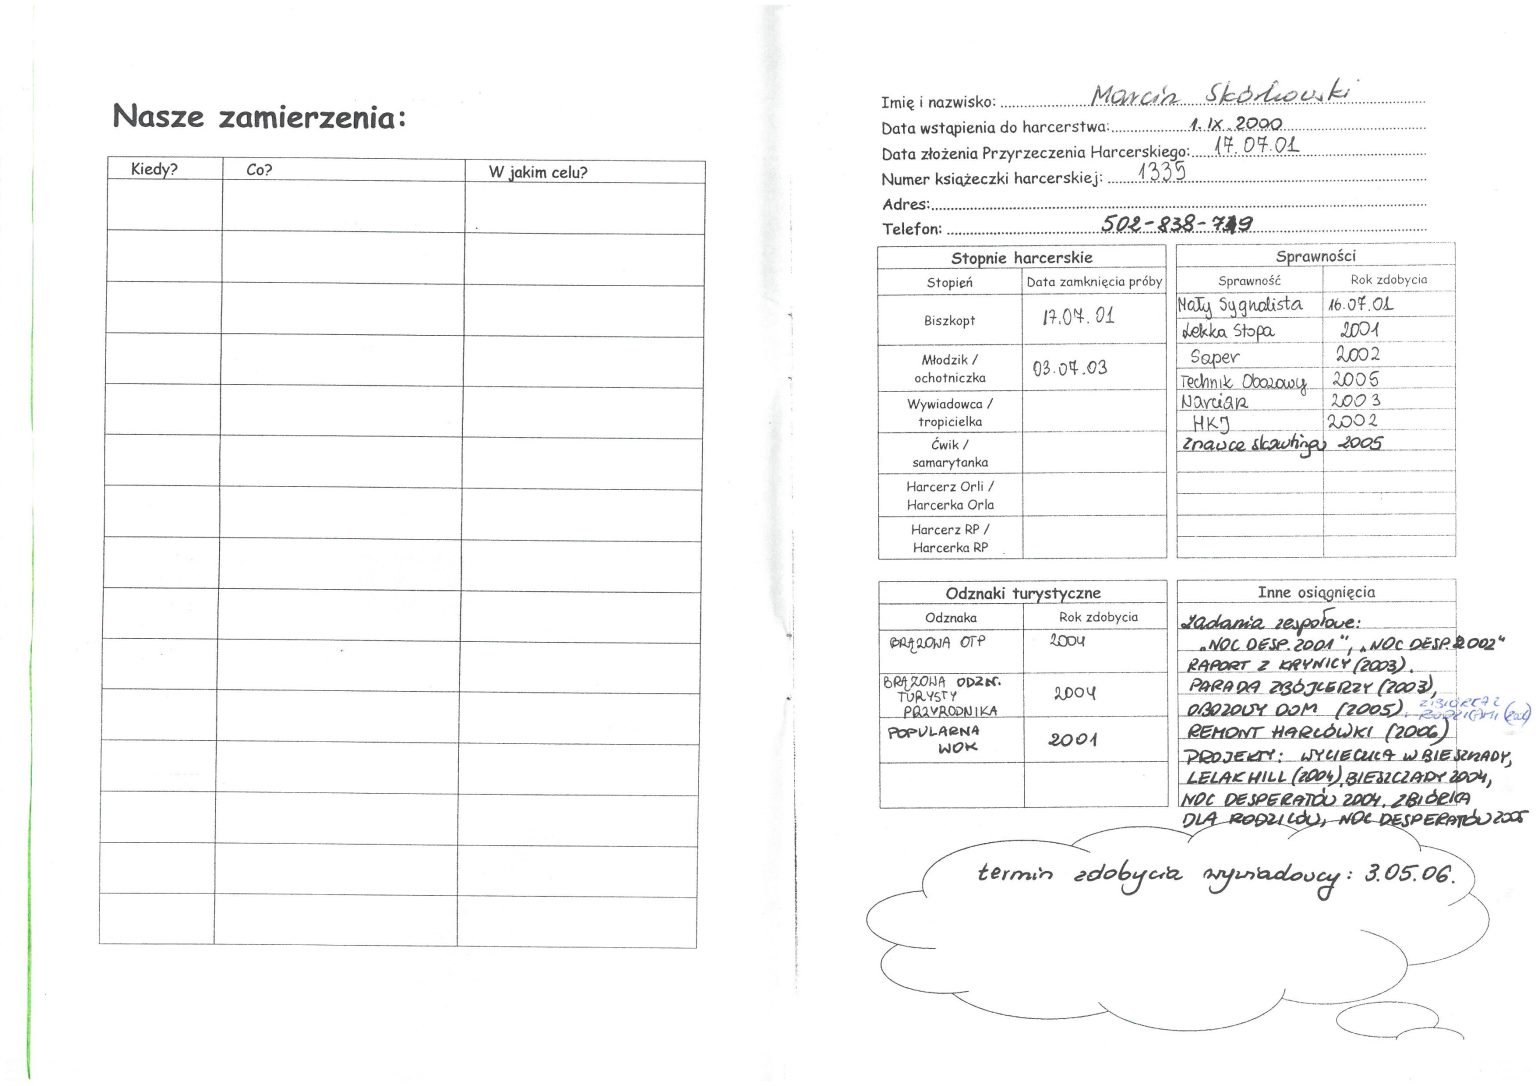 Nasze zamierzenia:
Kiedy? Co? W jakim celu?
Imię i nazwisko: Marcin Skórkowski
Data wstąpienia do harcerstwa: 1. IX. 2000
Data złożenia Przyrzeczenia Harcerskiego: 17.07.01
Numer książeczki harcerskiej: 1335
Adres:
Telefon: 502-838-719
Stopnie harcerskie
Stopień Data zamknięcia próby
Biszkopt 17.07.01
Młodzik /
ochotniczka 03.07.03
Wywiadowca /
tropicielka
Ćwik /
samarytanka
Harcerz Orli /
Harcerka Orla
Harcerz RP /
Harcerka RP
Sprawności
Sprawność Rok zdobycia
Mały Sygnalista 16.07.01
Lekka Stopa 2001
Saper 2002
Technik Obozowy 2005
Narciarz 2003
HKJ 2002
Znawca skawtingu 2005
Odznaki turystyczne
Odznaka Rok zdobycia
BRĄZOWA OTP 2004
BRĄZOWA ODZN.
TURYSTY
PRZYRODNIKA 2004
POPULARNA
WOK 2001
Inne osiągnięcia
Zadania zespołowe:
„NOC DESP. 2001", „NOC DESP. 2002"
RAPORT Z KRYNICY (2003).
PARADA ZBÓJCERZY (2003),
OBOZOWY DOM (2005),
ZBIÓRKA Z
RODZICAMI
REMONT HARCÓWKI (2006)
PROJEKTY: WYCIECZKA W BIESZCZADY,
LELAK HILL (2004), BIESZCZADY 2004,
NOC DESPERATÓW 2004, ZBIÓRKA
DLA RODZICÓW, NOC DESPERATÓW 2005
termin zdobycia wywiadowcy: 3.05.06.